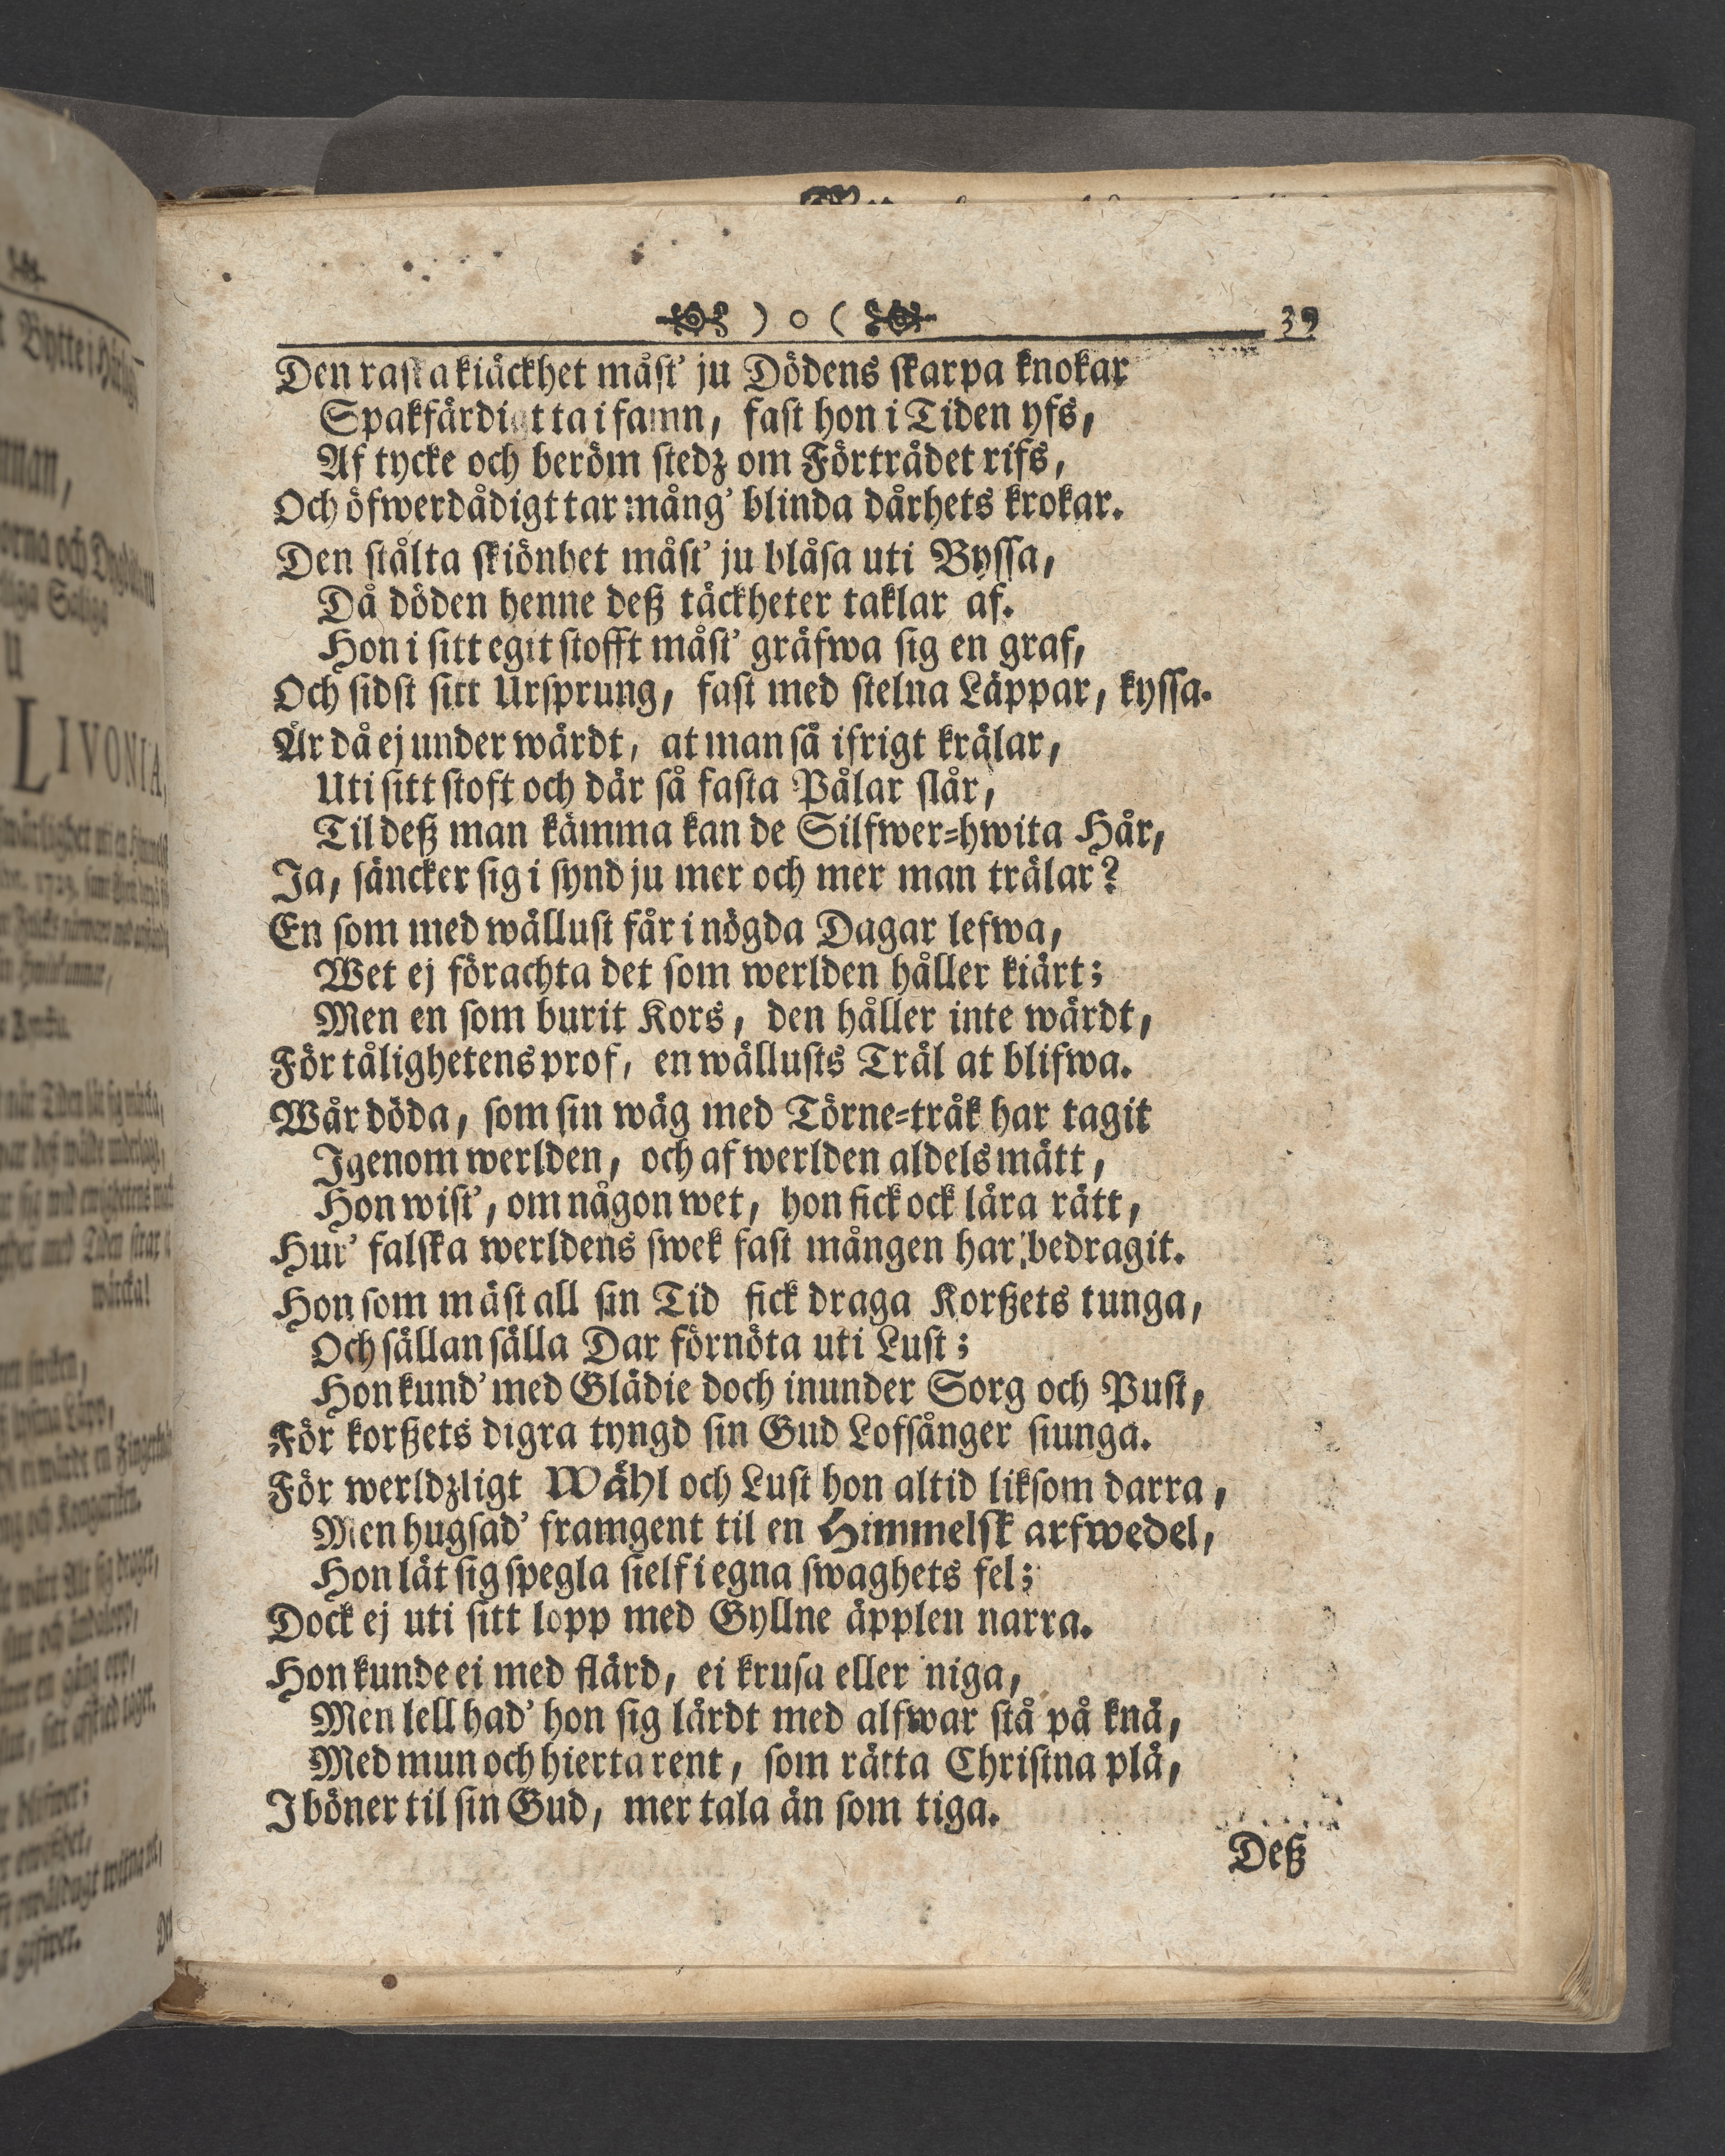 ) o ( 39
Den raska kiäckhet måst' ju Dödens skarpa knokar
Spakfärdigt ta i famn, fast hon i Tiden yfs,
Af tycke och beröm stedz om Förträdet rifs,
Och öfwerdådigt tar mång' blinda dårhets krokar.
Den stålta skiönhet måst' ju blåsa uti Byssa,
Då döden henne deß täckheter taklar af.
Hon i sitt egit stofft måst' gräfwa sig en graf,
Och sidst sitt Ursprung, fast med stelna Läppar, kyssa.
Är då ej under wärdt, at man så ifrigt krälar,
Uti sitt stoft och där så fasta Pålar slår,
Til deß man kämma kan de Silfwer-hwita Hår,
Ja, säncker sig i synd ju mer och mer man trälar?
En som med wällust får i nögda Dagar lefwa,
Wet ej förachta det som werlden håller kiärt;
Men en som burit Kors, den håller inte wärdt,
För tålighetens prof, en wällusts Träl at blifwa.
Wår döda, som sin wäg med Törne-tråk har tagit
Igenom werlden, och af werlden aldels mätt,
Hon wist', om någon wet, hon fick ock lära rätt,
Hur' falska werldens swek fast mången har bedragit.
Hon som mäst all sin Tid fick draga Korßets tunga,
Och sällan sälla Dar förnöta uti Lust;
Hon kund' med Glädie doch inunder Sorg och Pust,
För korßets digra tyngd sin Gud Lofsånger siunga.
För werldzligt Wähl och Lust hon altid liksom darra,
Men hugsad' framgent til en Himmelsk arfwedel,
Hon lät sig spegla sielf i egna swaghets fel;
Dock ej uti sitt lopp med Gyllne äpplen narra.
Hon kunde ei med flärd, ei krusa eller niga,
Men lell had' hon sig lärdt med alfwar stå på knä,
Med mun och hierta rent, som rätta Christna plä,
I böner til sin Gud, mer tala än som tiga.
Deß
LIVONIA,